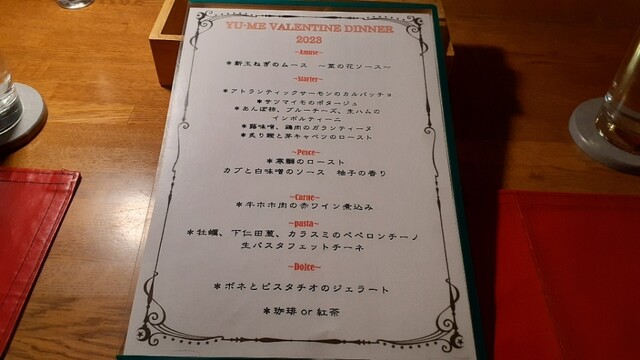 YU-ME VALENTINE DINNER
2023
~Amuse~
*新玉ねぎのムース ～菜の花ソース～
~Starter~
*アトランティックサーモンのカルパッチョ
*サツマイモのポタージュ
*あんぽ柿、ブルーチーズ、生ハムの
インボルティーニ
*蕗味噌、鶏肉のガランティーヌ
*炙り鰹と芽キャベツのロースト
~Pesce~
*寒鰤のロースト
カブと白味噌のソース 柚子の香り
~Carne~
*牛ホホ肉の赤ワイン煮込み
~pasta~
*牡蠣、下仁田葱、カラスミのペペロンチーノ
生パスタフェットチーネ
~Dolce~
*ボネとピスタチオのジェラート
*珈琲 or 紅茶